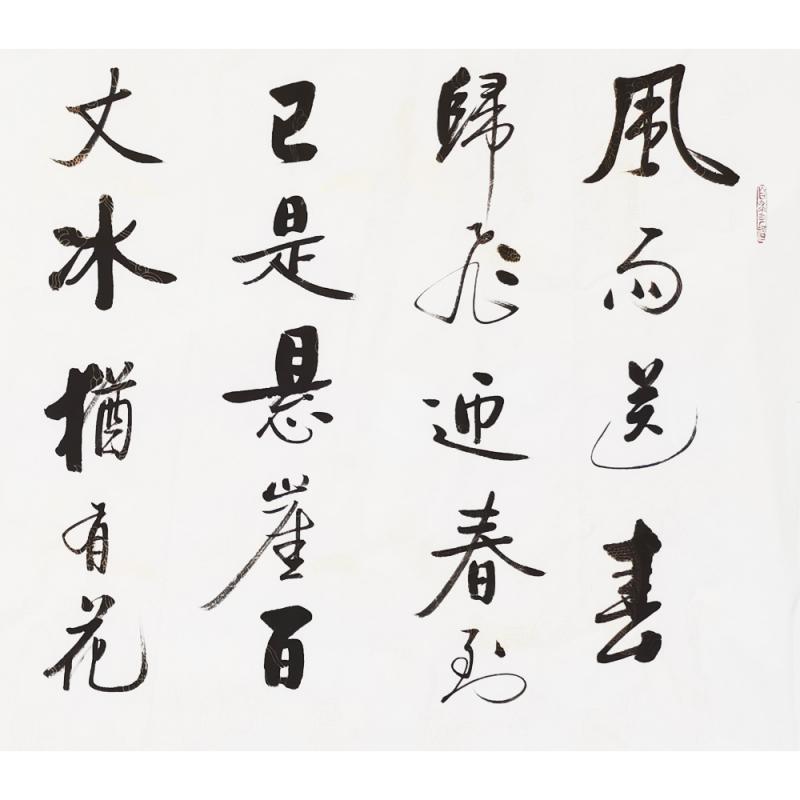 風雨送春
歸飛迎春到
已是悬崖百
丈冰猶有花